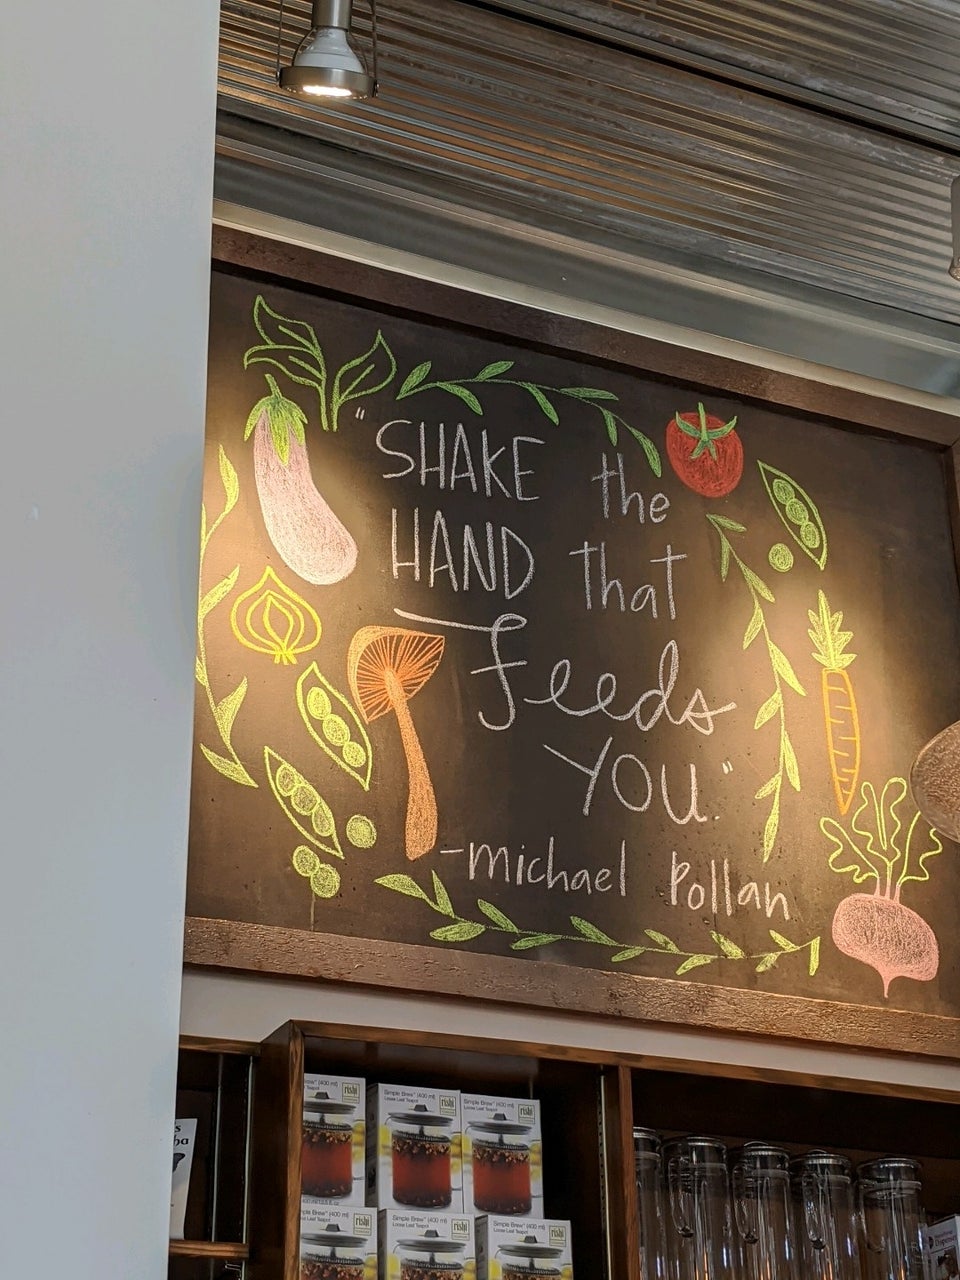 "SHAKE the
HAND that
feeds
YOU."
-michael Pollan
Simple Brew™ (400 ml)
Loose Leaf Teapot
rishi
Simple Brew™ (400 ml)
Loose Leaf Teapot
rishi
Simple Brew™ (400 ml)
Loose Leaf Teapot
rishi
(400 ml)
Teapot
rishi
Simple Brew™ (400 ml)
Loose Leaf Teapot
rishi
Simple Brew™ (400 ml)
Loose Leaf Teapot
rishi